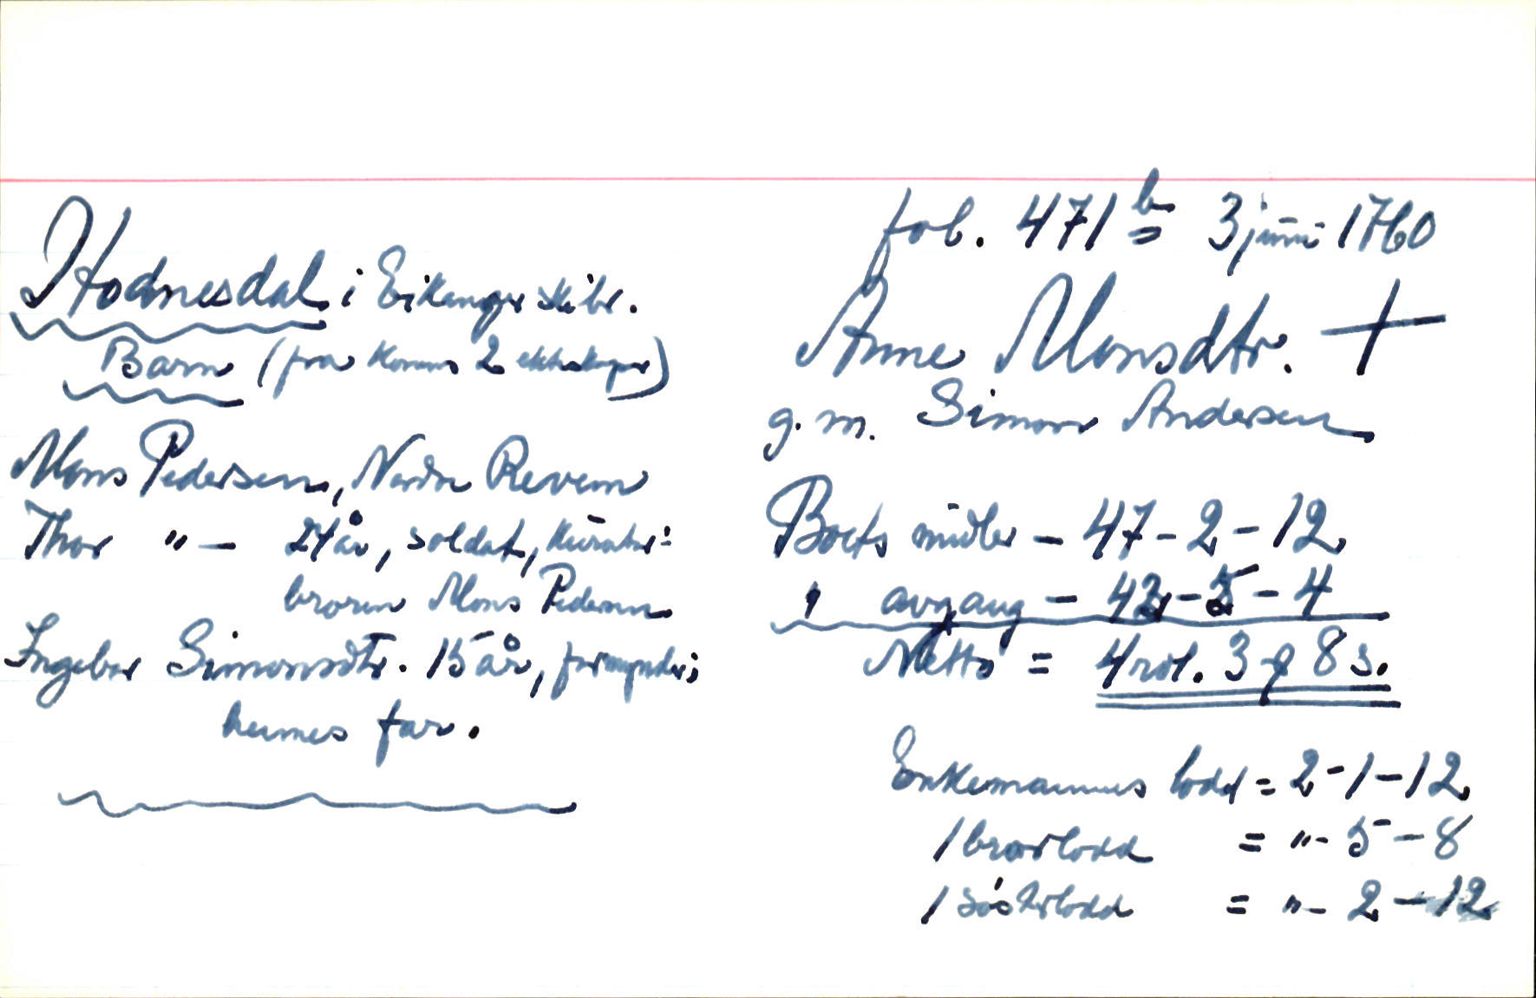 fol. 471b 3 juni 1760
Hodnesdal i Eikanger skibr.
Anne Monsdtr. +
g. m. Simon Andersen
Barn (fra konens 2 ekteskaper)
Mons Pedersen, Nordre Revem
Thor " — 24 år, soldat, kurator:
broren Mons Pedersen
Ingebor Simonsdtr. 15 år, formynder:
hennes far.
Boets midler — 47 - 2 - 12
" avgang — 42 - 5 - 4
Netto = 4 rdl. 3 ƒ 8 s.
Enkemannens lodd = 2 - 1 - 12
1 brorlodd = " - 5 - 8
1 søsterlodd = " - 2 - 12